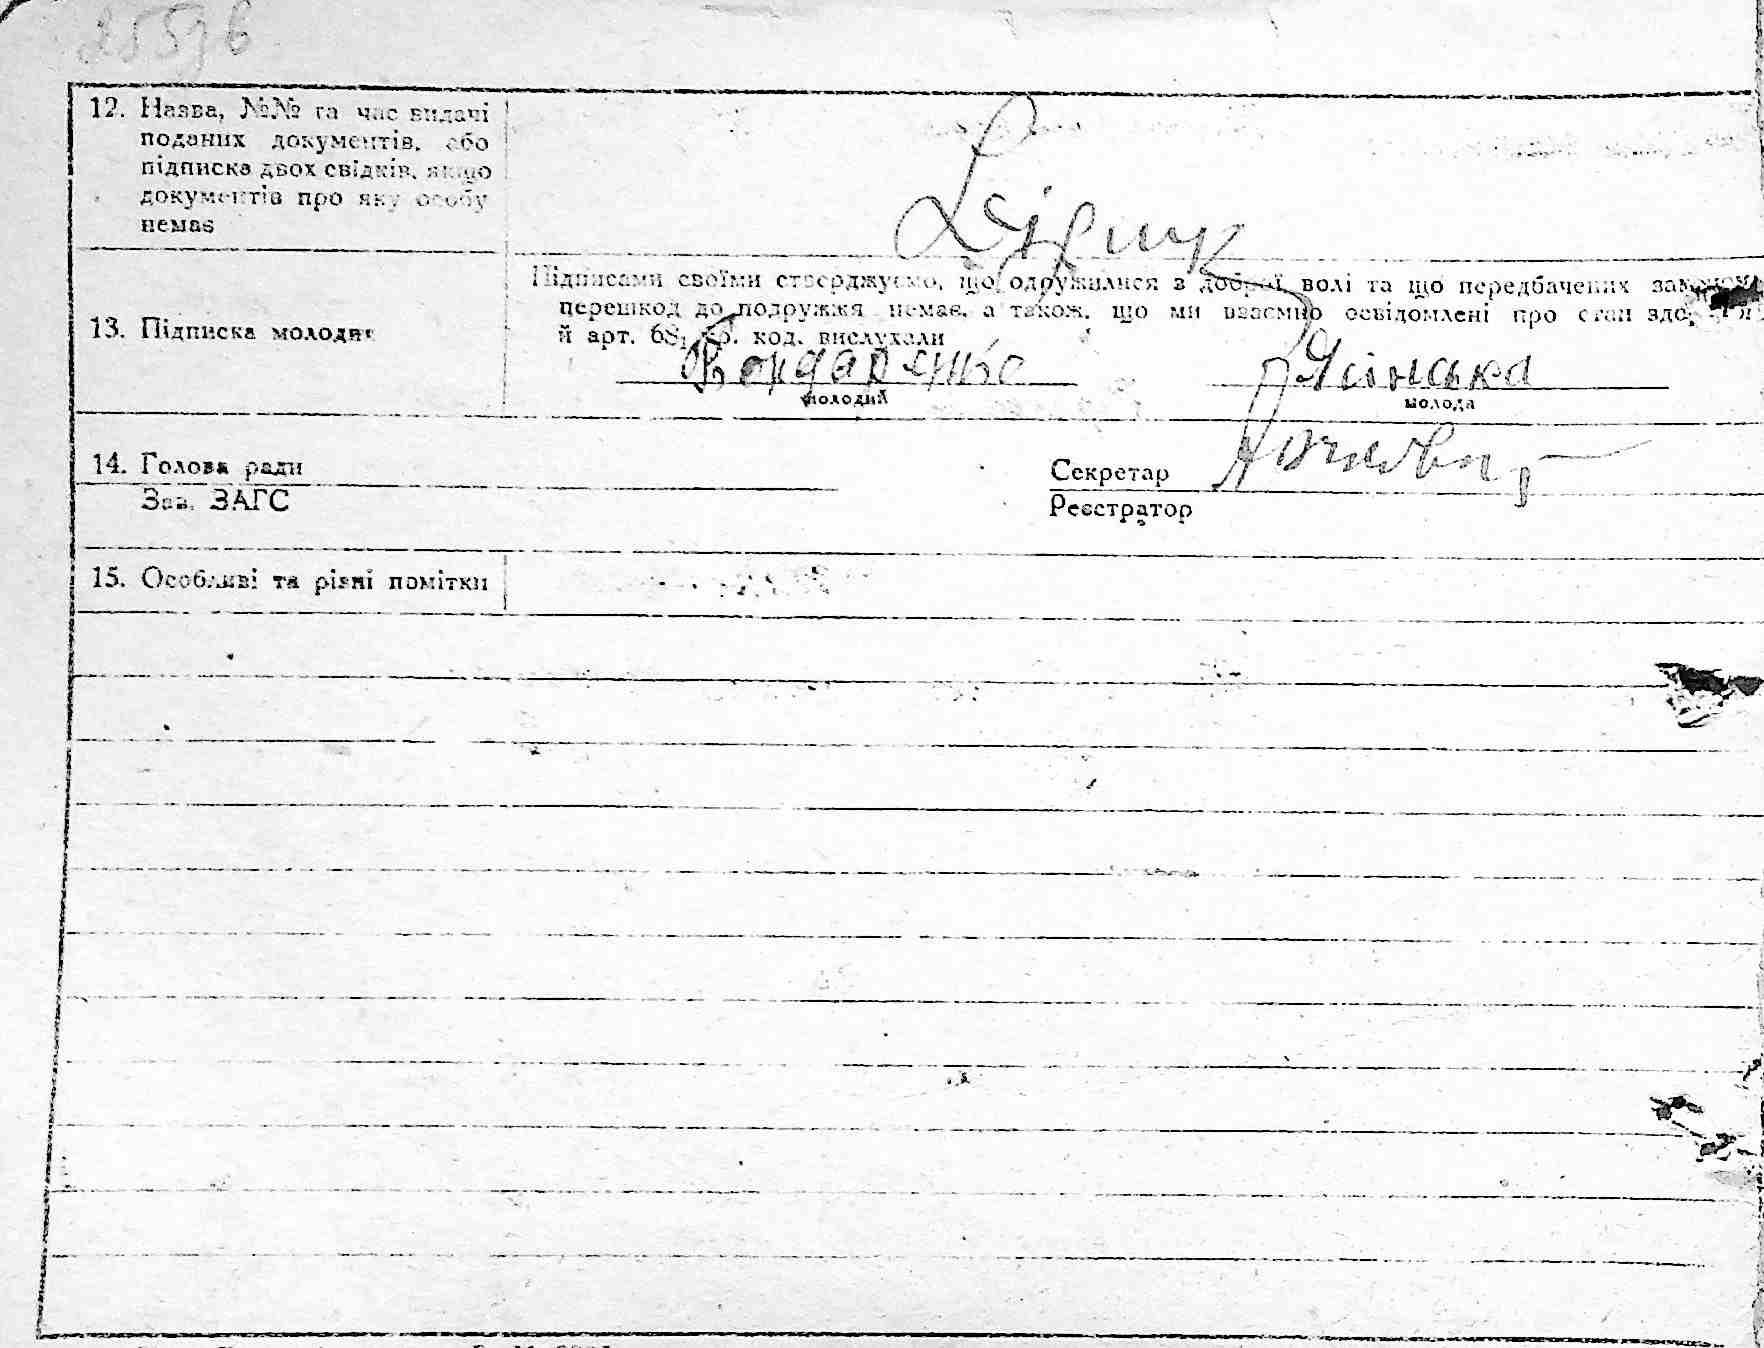 12. Назва, №№ та час видачі
поданих документів, або
підписка двох свідків, якщо
документів про яку особу
немає
Підписами своїми стверджуємо, що одружилися з доброї волі та що передбачених законом
перешкод до подружжя немає, а також, що ми взаємно освідомлені про стан
й арт. 68 код. вислухали
13. Підписка молодих
Бондаренко Ясінська
молодий молода
14. Голова ради Секретар
Зав. ЗАГС Реєстратор
15. Особливі та різні помітки